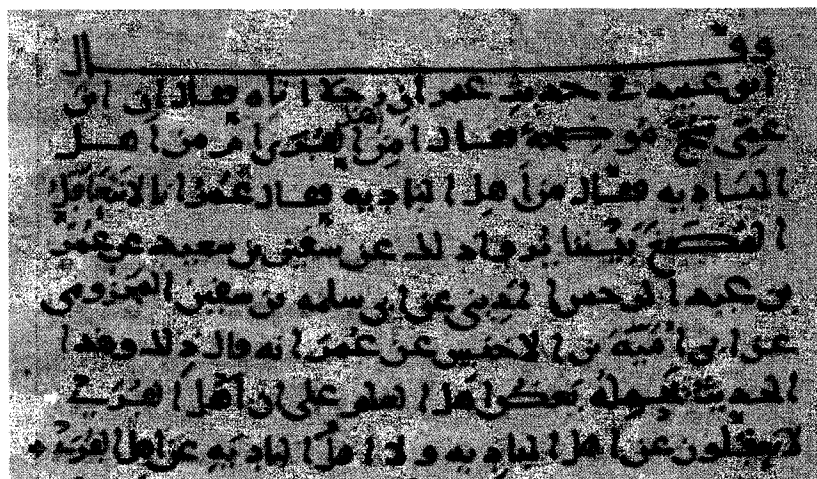 وقال
ابو عبيد في حديث عمر ان رجلا اتاه فقال ان ابن
عمي شج موضحة فقال امن اهل القرى ام من اهل
البادية فقال من اهل البادية فقال عمر انا لا نتعاقل
المضغ بيننا يروى ذلك عن سفين بن سعيد عن عمر
بن عبد الرحمن المديني عن ابي سلمه بن سفين المخزومي
عن ابي امية بن الاخنس عن عمر انه قال ذلك وهذا
الحديث يحمله بعض اهل العلم على ان اهل القرية
لا يعقلون عن اهل البادية ولا اهل البادية عن اهل القرية